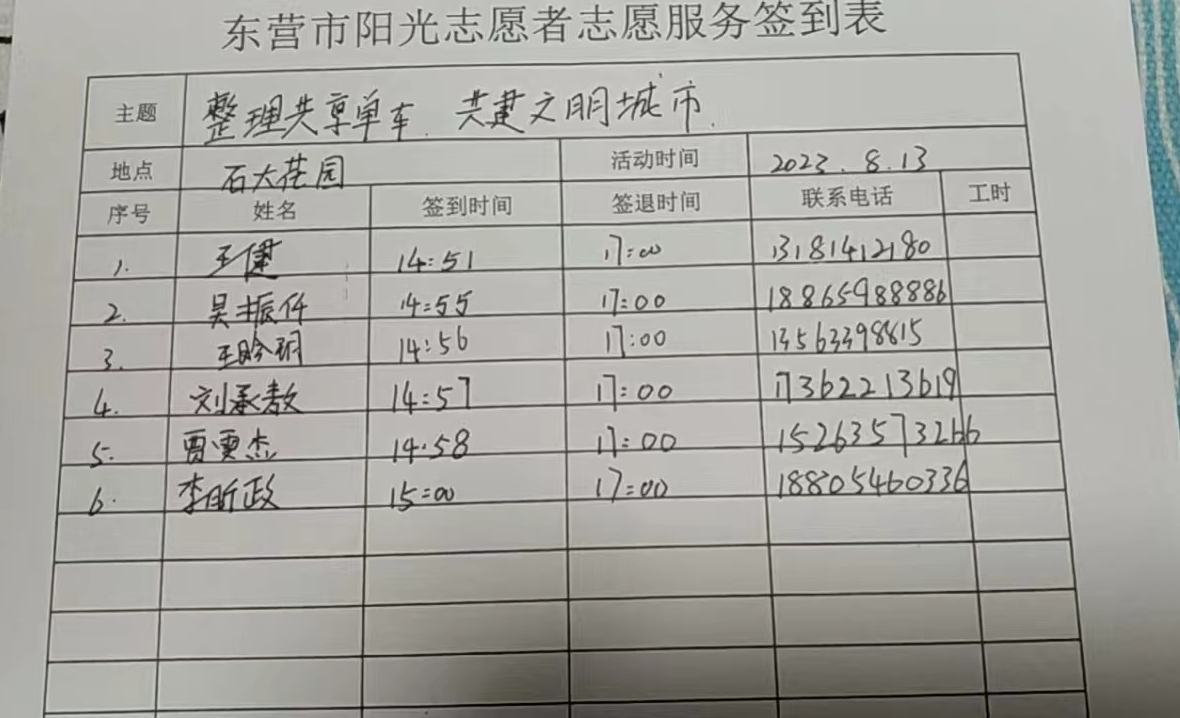 东营市阳光志愿者志愿服务签到表
主题 整理共享单车、共建文明城市.
地点 石大花园 活动时间 2023.8.13
序号 姓名 签到时间 签退时间 联系电话 工时
1. 王健 14:51 17:00 13181412180
2. 吴振仟 14:55 17:00 18865988886
3. 王昤玥 14:56 17:00 13563398815
4. 刘承敖 14:57 17:00 17362213619
5. 贾雯杰 14:58 17:00 15263573266
6. 李昕政 15:00 17:00 18805460336